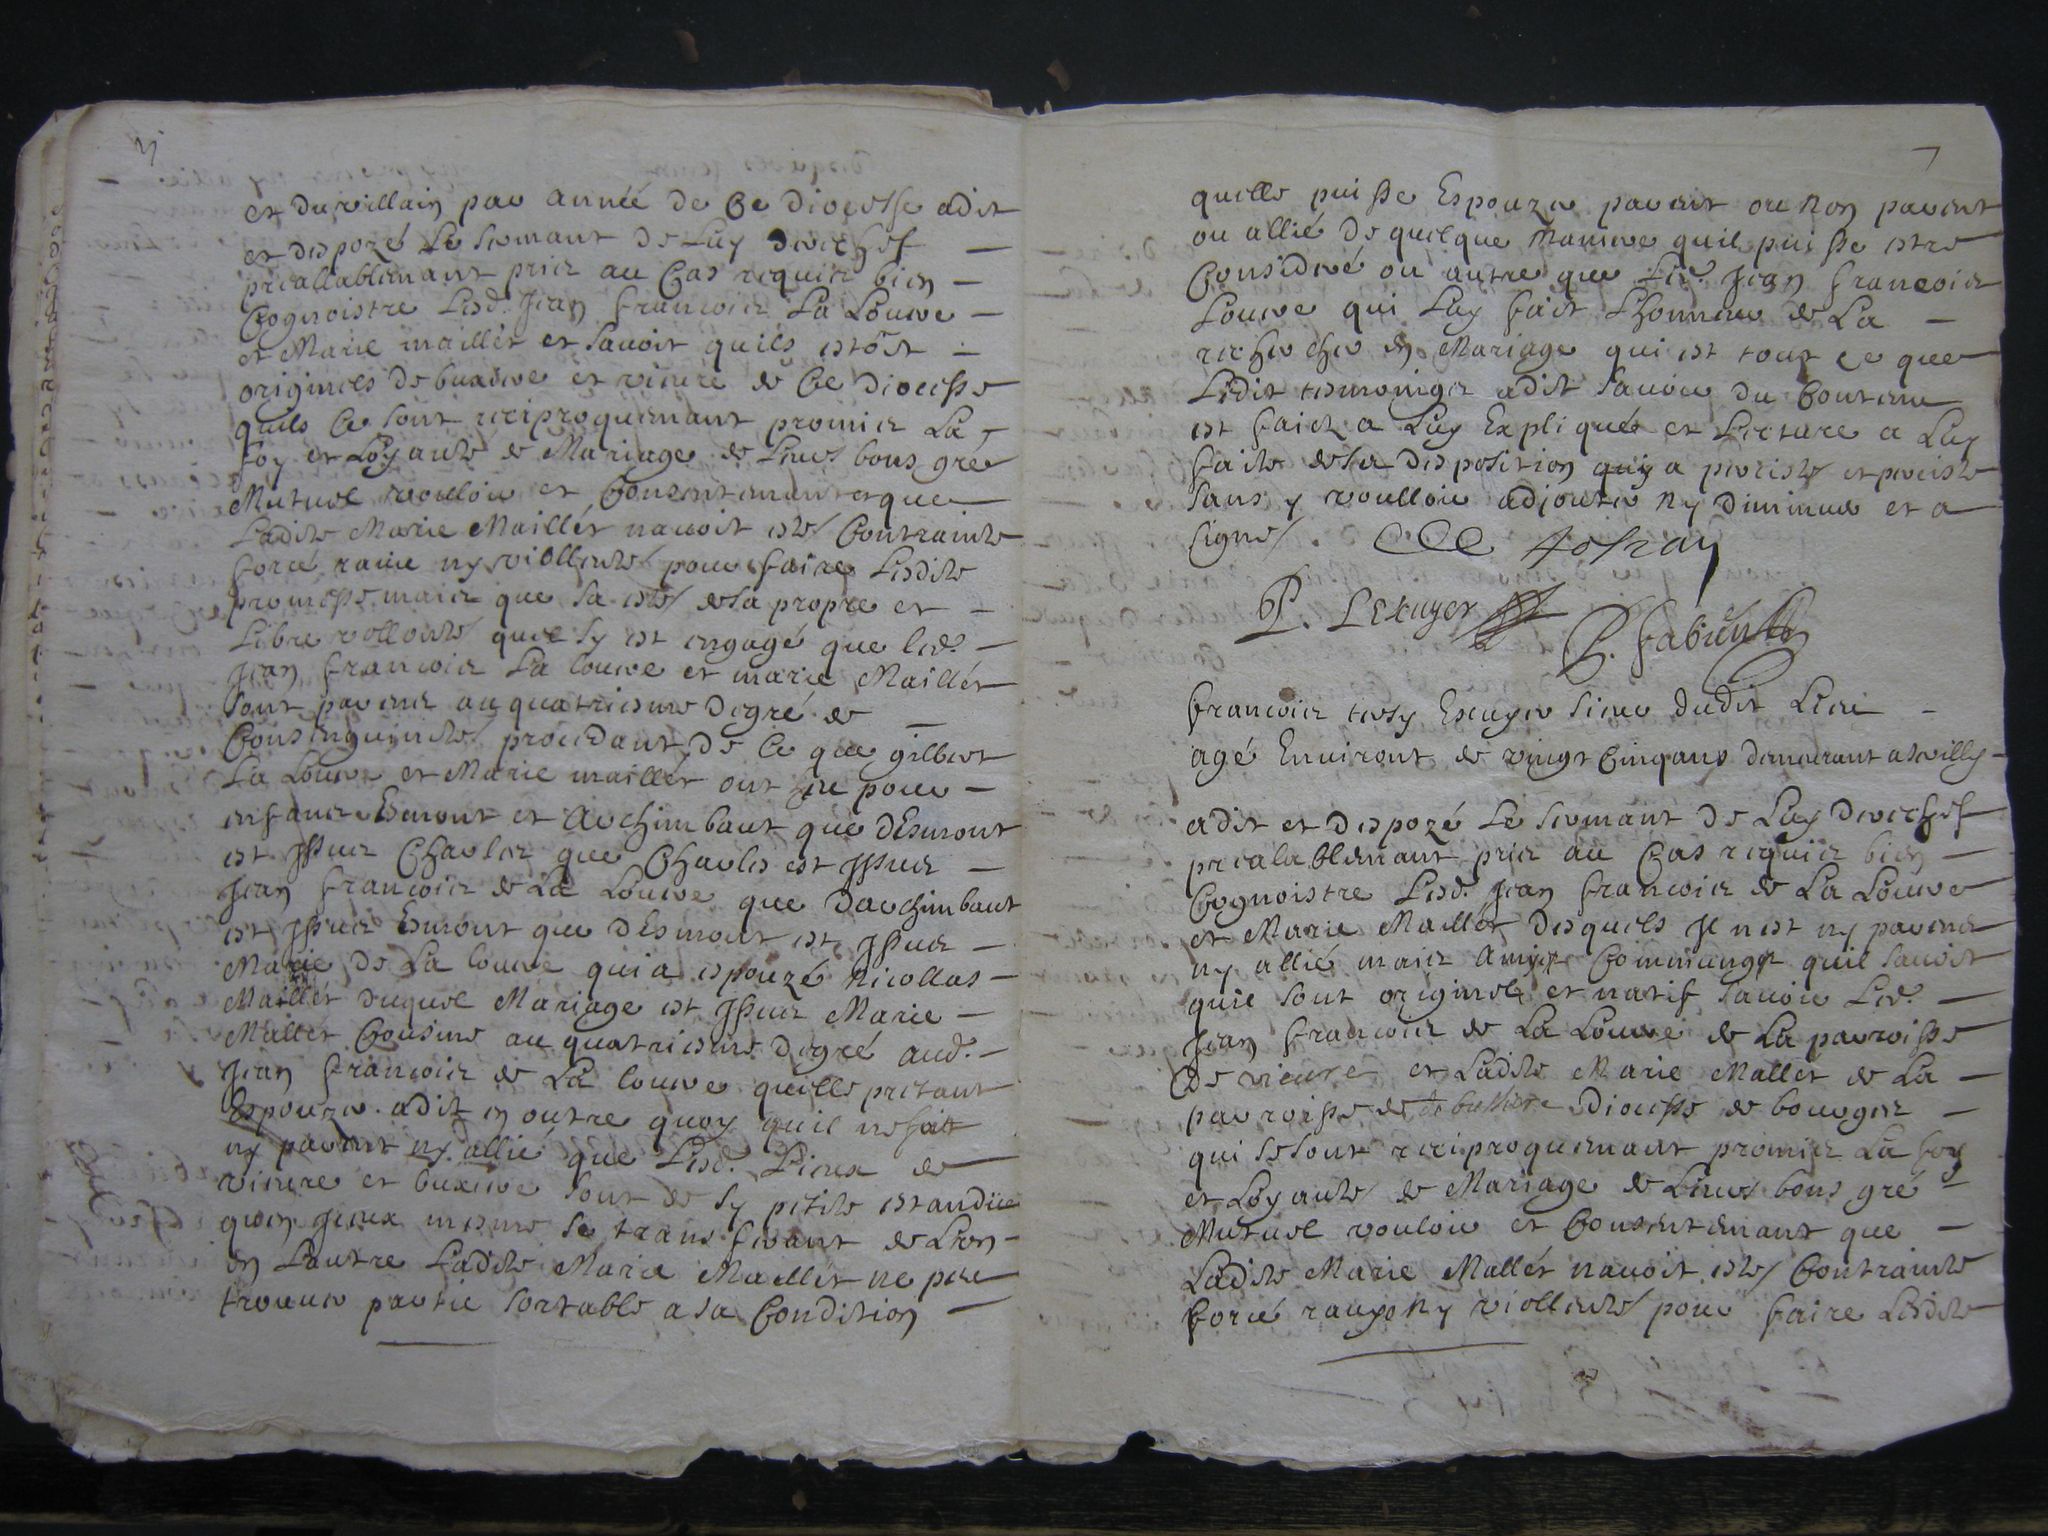 et du villain par année de Ce diocesse adit
et despozé Le sermant de Luy derechef
préallablemant pricz au Cas requicz bien
Cognoistre Lesd. Jean francoicz La Louere
et Marie maillét et sauoir quils estõt
originels de buxiere et vieure de Ce diocesse
quils Ce sont reciproquemant promicz La
foy et Loyauté de Mariage de Leurs bons gré
Mutuel vouloir et Consentemant et que
Ladite Marie Maillét nauoit esté Contrainte
forcé rauie ny viollenté pour faire Lesdite
promesse maicz que sa esté de sa propre et
Libre vollonté quel sy est engagé que led.
Jean francoicz La louere et marie Maillét
sont parent au quatriesme degré de
Consinguinité procedant de Ce que gilbert
La Louere et Marie maillét ont hu pour
enfant Esmont et Archimbaut que dEsmont
est Jssue Charles que Charles est Jssue
Jean francoicz de La Louere que darchimbaut
est Jssue Esmont que dEsmont est Jssue
Marie de La louere qui a espouzé Nicollas
Maillét duquel Mariage est Jssue Marie
Mallét Cousine au quatriesme degré aud.
Jean francoicz de La louere quelle pretant
Espouzer adit en outre quoy quil ne soit
ny parent ny allié que Lesd. Lieux de
vieure et buxiere sont de sy petite estandue
quen Jceux mesme se transferant de Lun
en Lautre Ladite Marie Maillét ne peu
trouuer partie sortable a sa Condition
7
quelle puisse Espouzer parent ou Non parent
ou allié de quelque maniere quil puisse estre
Consideré ou autre que Led. Jean francoicz
Louere qui Luy fait Lhonneur de La
rechercher en Mariage qui est tout Ce que
Ledit tesmoing adit sauoir du Contenu
est faict a Luy Expliqué et Lecture a Luy
faite de sa desposition quy a persisté et persiste
sans y voulloir adjouter Ny diminuer et a
signé
P. Lexuyer P. fabien
francoicz tersy Escuyer sieur dudit Lieu
agé Enuiront de vingt Cinq ans demeurant a
adit et despozé Le sermant de Luy derechef
prealablemant pricz au Cas requicz bien
Cognoistre Lesd. Jean francoicz de La Louere
et Marie Maillét desquels Jl nest ny parent
ny allié maicz amys Commungz quil sauoit
quil sont originels et natif sauoir Led.
Jean francoicz de La Louere de La parroisse
de vieure et Ladite Marie Mallet de La
parroisse de de bussiere diocesse de bourgez
qui se sont reciproquemant promicz La foy
et Loyauté de Mariage de Leurs bons gré
Mutuel vouloir et Consentemant que
Ladite Marie Mallét nauoit esté Contrainte
forcé rauye Ny viollenté pour faire Lesdite